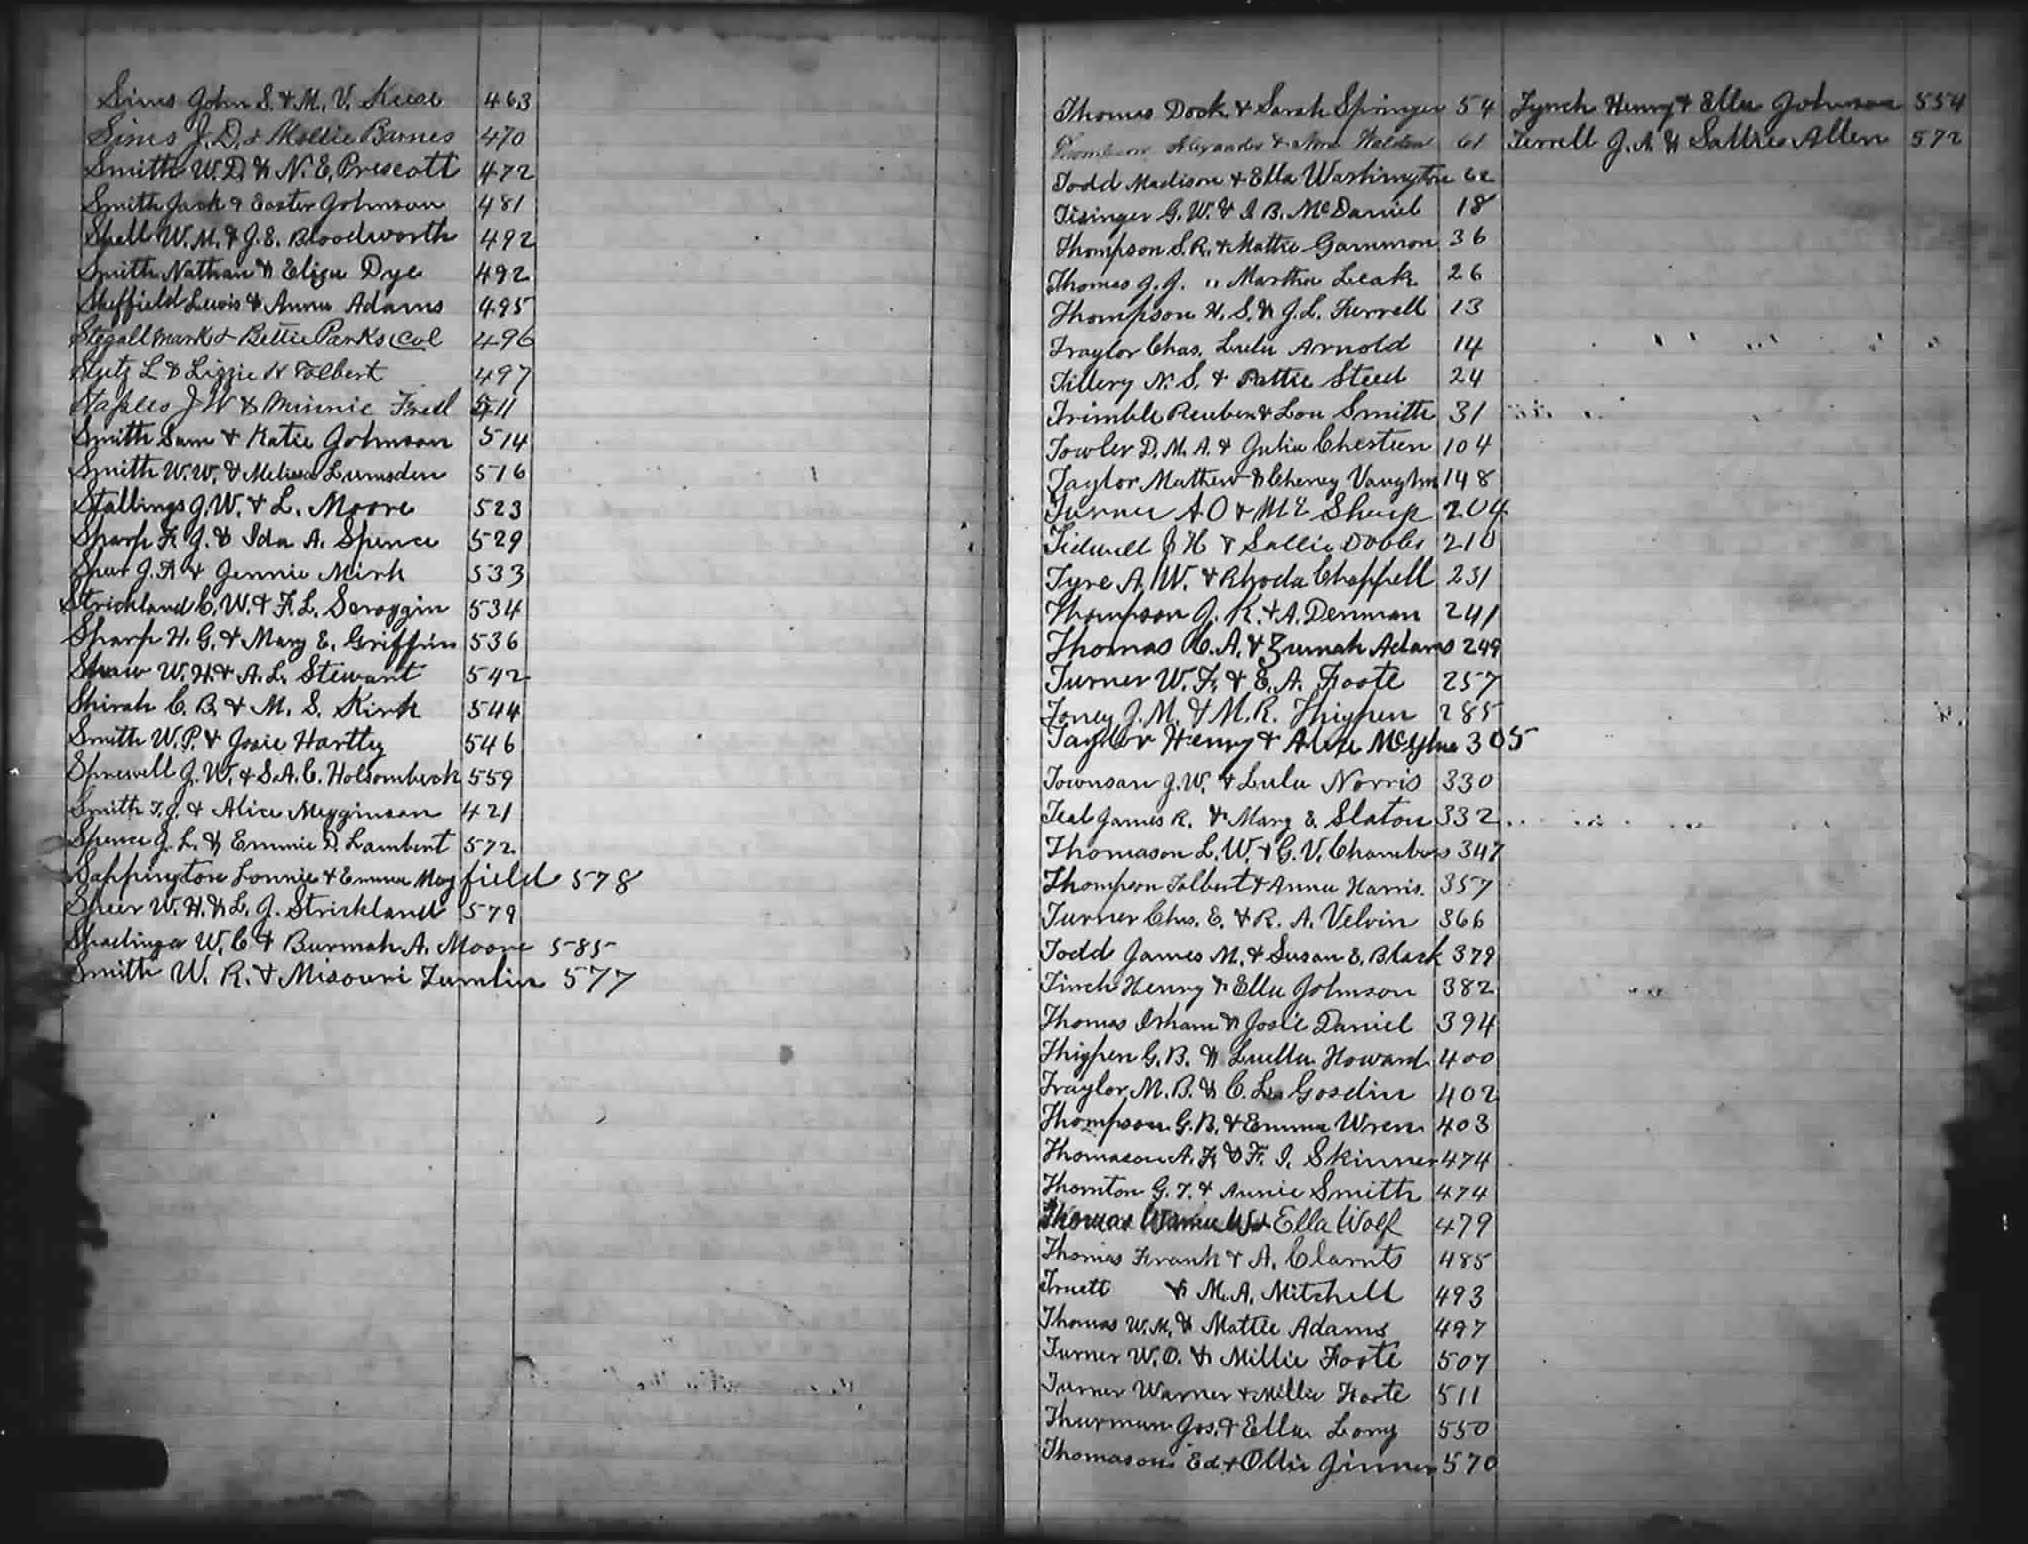 Sims John S. & M. V. Keese 463
Sims J. D. & Mollie Barnes 470
Smith W. D. & N. E. Prescott 472
Smith Jack & Easter Johnson 481
Spell W. M. & J. E. Bloodworth 492
Smith Nathan & Eliza Dye 492
Sheffield Lewis & Annie Adams 495
Stegall Mark & Bettie Parks Col 496
L & Lizzie H Tolbert 497
Staples J W & Minnie 511
Smith Sam & Katie Johnson 514
Smith W. W. & Melissa Lumsden 516
Stallings J. W. & L. Moore 523
Sharp F. J. & Ida A. Spence 529
Spear J. F. & Jennie Mirk 533
Strickland C. W. & F. L. Scroggin 534
Sharp H. G. & Mary E. Griffin 536
Shaw W. H. & A. L. Stewart 542
Shirah C. B. & M. S. Kirk 544
Smith W. P. & Josie Hartley 546
Sprewell J. W. & S. A. C. Holsombeck 559
Smith T. J. & Alice Megginson 421
Spence J. L. & Emmie D. Lambert 572
Sappington Lonnie & Emma Mayfield 578
Speer W. H. & L. J. Strickland 579
Shadinger W. C & Burmah A. Moore 585
Smith W. R. & Misouri Tumlin 577
Thomas Dock & Sarah Springer 54
Alexander & Walden 61
Todd Madison & Ella Washington 62
Tisinger G. W. & I. B. McDaniel 18
Thompson S. R. & Mattie Gammon 36
Thomas J. J. " Martha Leak 26
Thompson H. S. & J. L. Ferrell 13
Traylor Chas. Lula Arnold 14
Tillery N. S. & Pattie Steed 24
Trimble Reuben & Lou Smith 31
Towler D. M. A. & Julia Chestien 104
Taylor Mathew & Cheney Vaughn 148
Turner A O & M. E Sharp 204
Tidwell J H & Sallie Dobbs 210
Tyre A. W. & Rhoda Chappell 231
Thompson J. K. & A. Denman 241
Thomas C. A. & Zumah Adams 249
Turner W. F. & E. A. Foote 257
Toney J. M. & M. R. Thigpen 285
Taylor Henry & Alice 305
Townson J. W. & Lula Norris 330
Teal James R. & Mary E. Slaton 332
Thomason L. W. & G. V. Chambers 347
Thompson Tolbert & Anna Harris. 357
Turner Chs. E. & R. A. Velvin 366
Todd James M. & Susan E. Black 379
Tinch Henry & Ella Johnson 382
Thomas Isham & Josie Daniel 394
Thigpen G. B. & Luella Howard 400
Traylor M. B. & C. L. Gosdin 402
Thompson G. B. & Emma Wren 403
Thomason A. F. & F. I. Skinner 474
Thornton G. T. & Annie Smith 474
Thomas & Ella Wolf 479
Thomas Frank & A. Clamts 485
Truett & M. A. Mitchell 493
Thomas W. M. & Mattie Adams 497
Turner W. O. & Millie Foote 507
Turner Warner & Millie Foote 511
Thurman Jos. & Ella Long 550
Thomason Ed & Ollie Jinner 570
Tynch Henry & Ella Johnson 554
Terrell J. A. & Sallie Allen 572